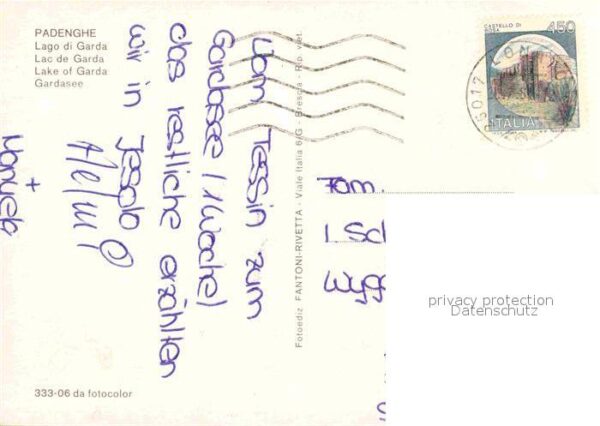 PADENGHE
Lago di Garda
Lac de Garda
Lake of Garda
Gardasee
Vom Tessin zum
Gardasee (1 Woche)
das restliche erzählten
wir in Jesolo
+
Manuela
333-06 da fotocolor
Fotoediz. FANTONI-RIVETTA - Viale Italia 6/G - Brescia - Rip. viet.
CASTELLO DI
450
ITALIA
25017
Fam.
privacy protection
Datenschutz